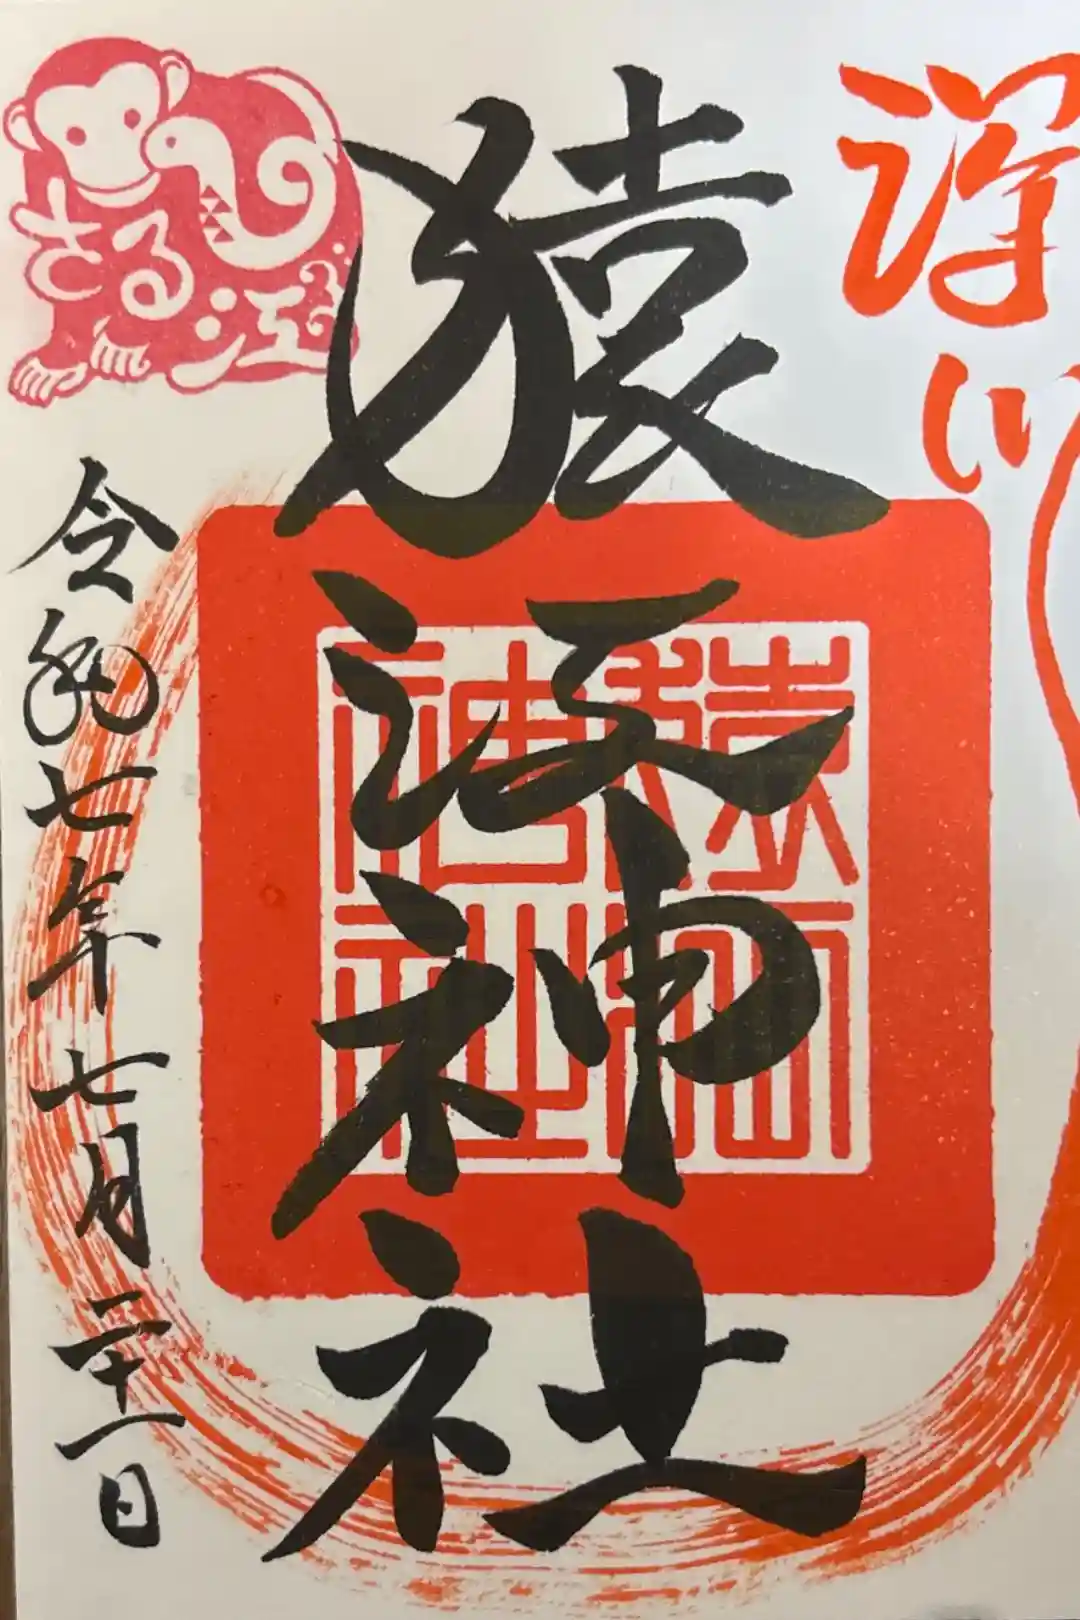 深川
猿江神社
猿江神社
さる江
令和七年七月二十一日